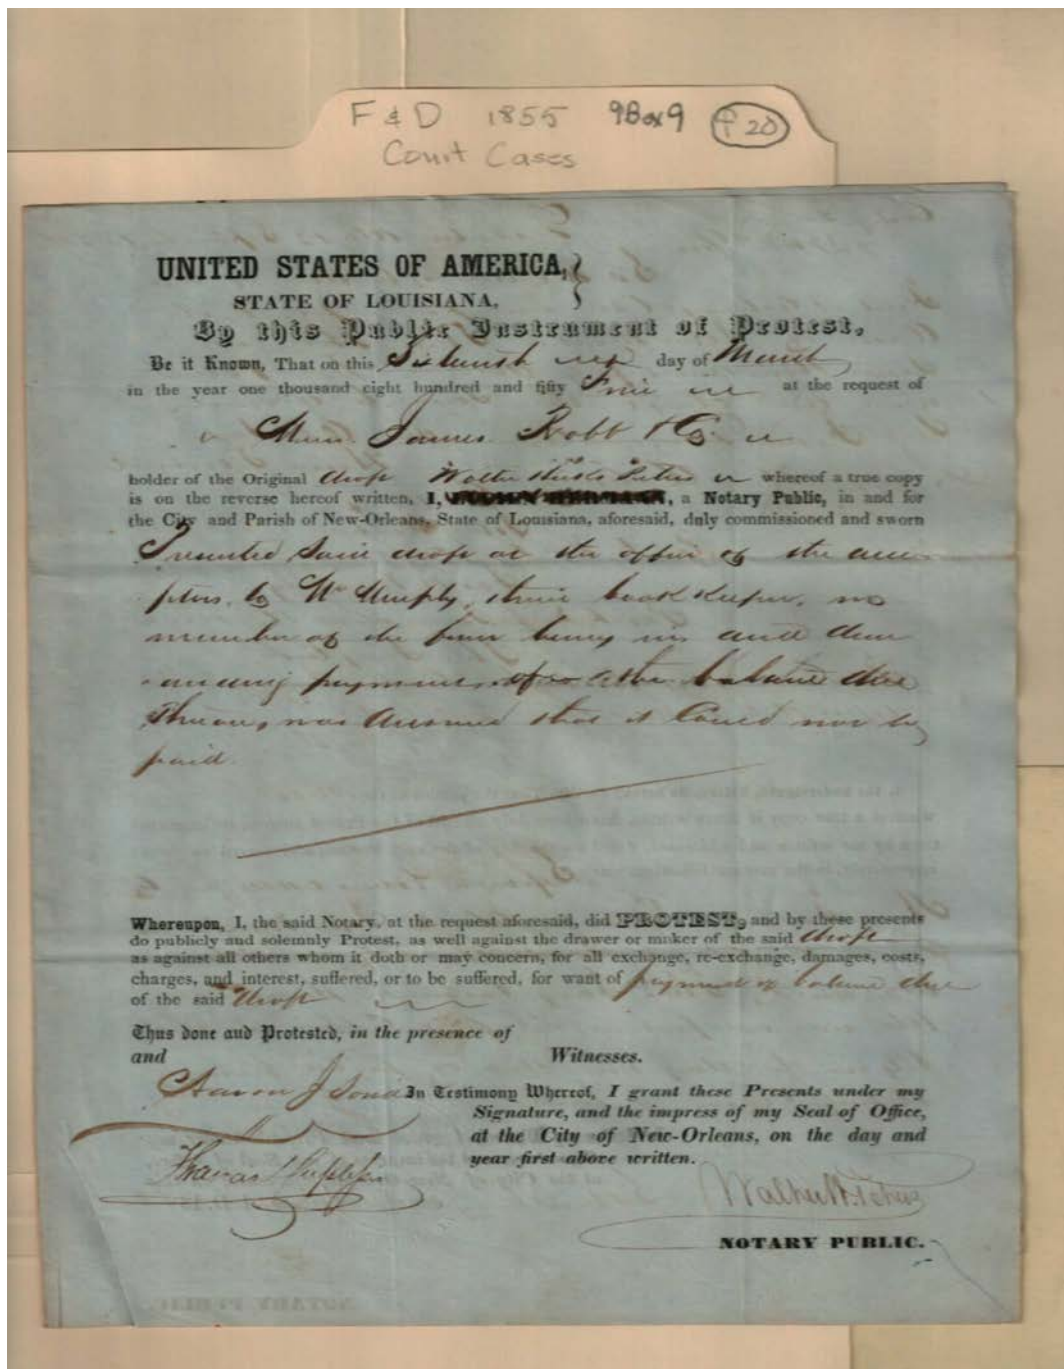 F & D 1855 9Box9 P 20
Court Cases
UNITED STATES OF AMERICA,
STATE OF LOUISIANA,
By this Public Instrument of Protest,
Be it Known, That on this day of March
in the year one thousand eight hundred and fifty at the request of
James Robb & Co
holder of the Original draft whereof a true copy
is on the reverse hereof written, I, a Notary Public, in and for
the City and Parish of New-Orleans, State of Louisiana, aforesaid, duly commissioned and sworn
Presented said draft at the office of the acce-
ptors, to Mr Murphy, their book keeper, no
member of the firm being in and dem
anding payment of the balance due
thereon, was answered that it could not be
paid.
Whereupon, I, the said Notary, at the request aforesaid, did PROTEST, and by these presents
do publicly and solemnly Protest, as well against the drawer or maker of the said draft
as against all others whom it doth or may concern, for all exchange, re-exchange, damages, costs,
charges, and interest, suffered, or to be suffered, for want of payment of balance due
of the said draft
Thus done and Protested, in the presence of
and Witnesses.
In Testimony Whereof, I grant these Presents under my
Signature, and the impress of my Seal of Office,
at the City of New-Orleans, on the day and
year first above written.
NOTARY PUBLIC.